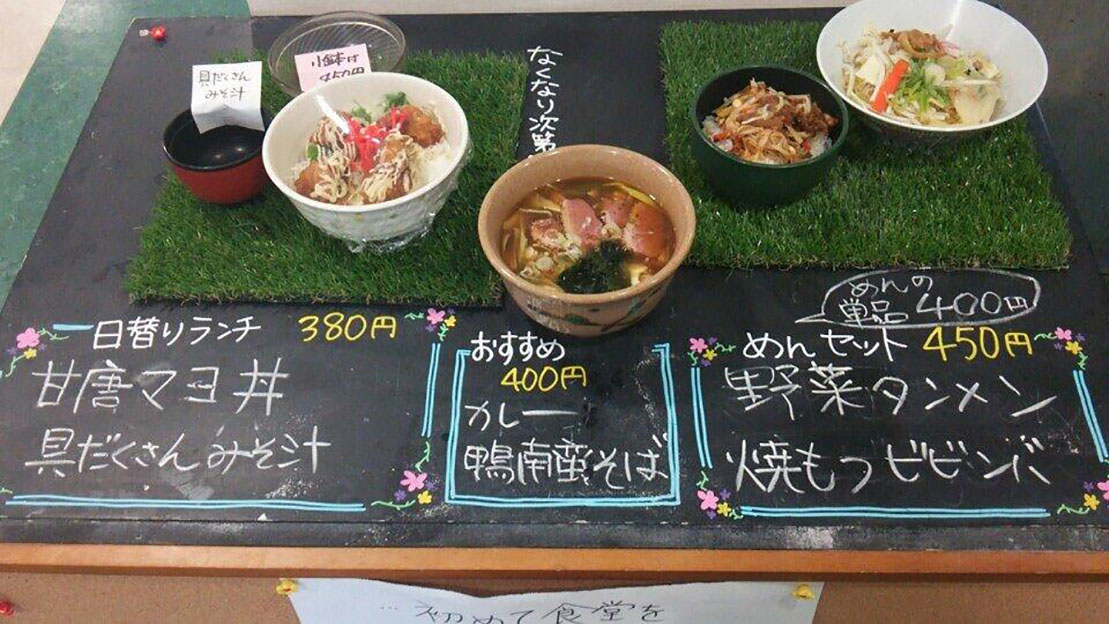 具だくさん
みそ汁
小鉢付
450円
なくなり次第
日替りランチ 380円
甘唐マヨ丼
具だくさんみそ汁
おすすめ
400円
カレー
鴨南蛮そば
めんの
単品 400円
めんセット 450円
野菜タンメン
焼もつビビンバ
…初めて食堂を